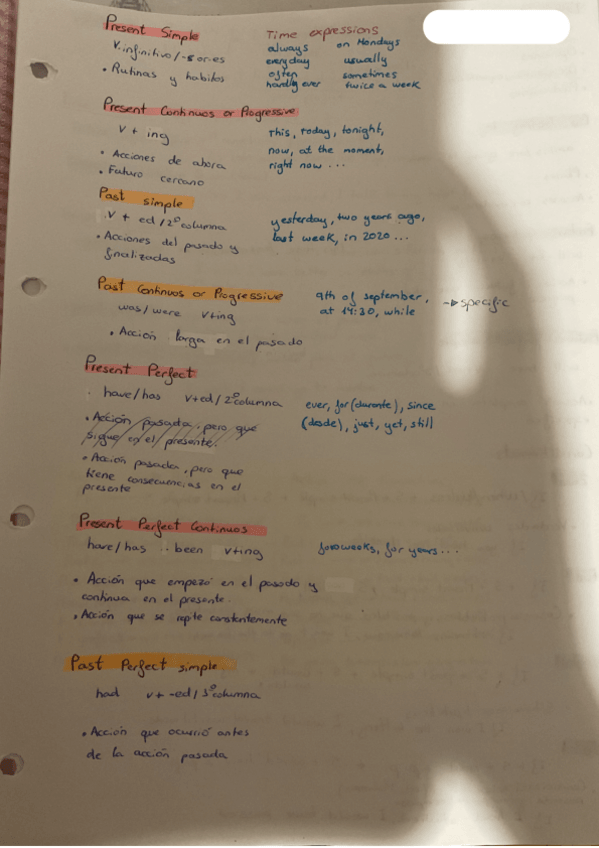 Present Simple
Time expressions
V.infinitivo/-s ories
always on Mondays
everyday usually
• Rutinas y habitos
often sometimes
hardly ever twice a week
Present Continuos or Progressive
V + ing
this, today, tonight,
now, at the moment,
• Acciones de ahora
right now ...
• Futuro cercano
Past simple
V + ed / 2º columna
yesterday, two years ago,
last week, in 2020 ...
• Acciones del pasado y
finalizadas
Past Continuos or Progressive
9th of september, → specific
at 14:30, while
was/were V+ing
• Acción larga en el pasado
Present Perfect
have/has V+ed/2ºcolumna
ever, for (durante), since
(desde), just, yet, still
• Acción pasada, pero que
sigue en el presente.
• Acción pasada, pero que
tiene consecuencias en el
presente
Present Perfect Continuos
have/has been V+ing
weeks, for years ...
• Acción que empezó en el pasado y
continua en el presente.
• Acción que se repite constantemente
Past Perfect simple
had V+ -ed/3ºcolumna
• Acción que ocurrió antes
de la acción pasada